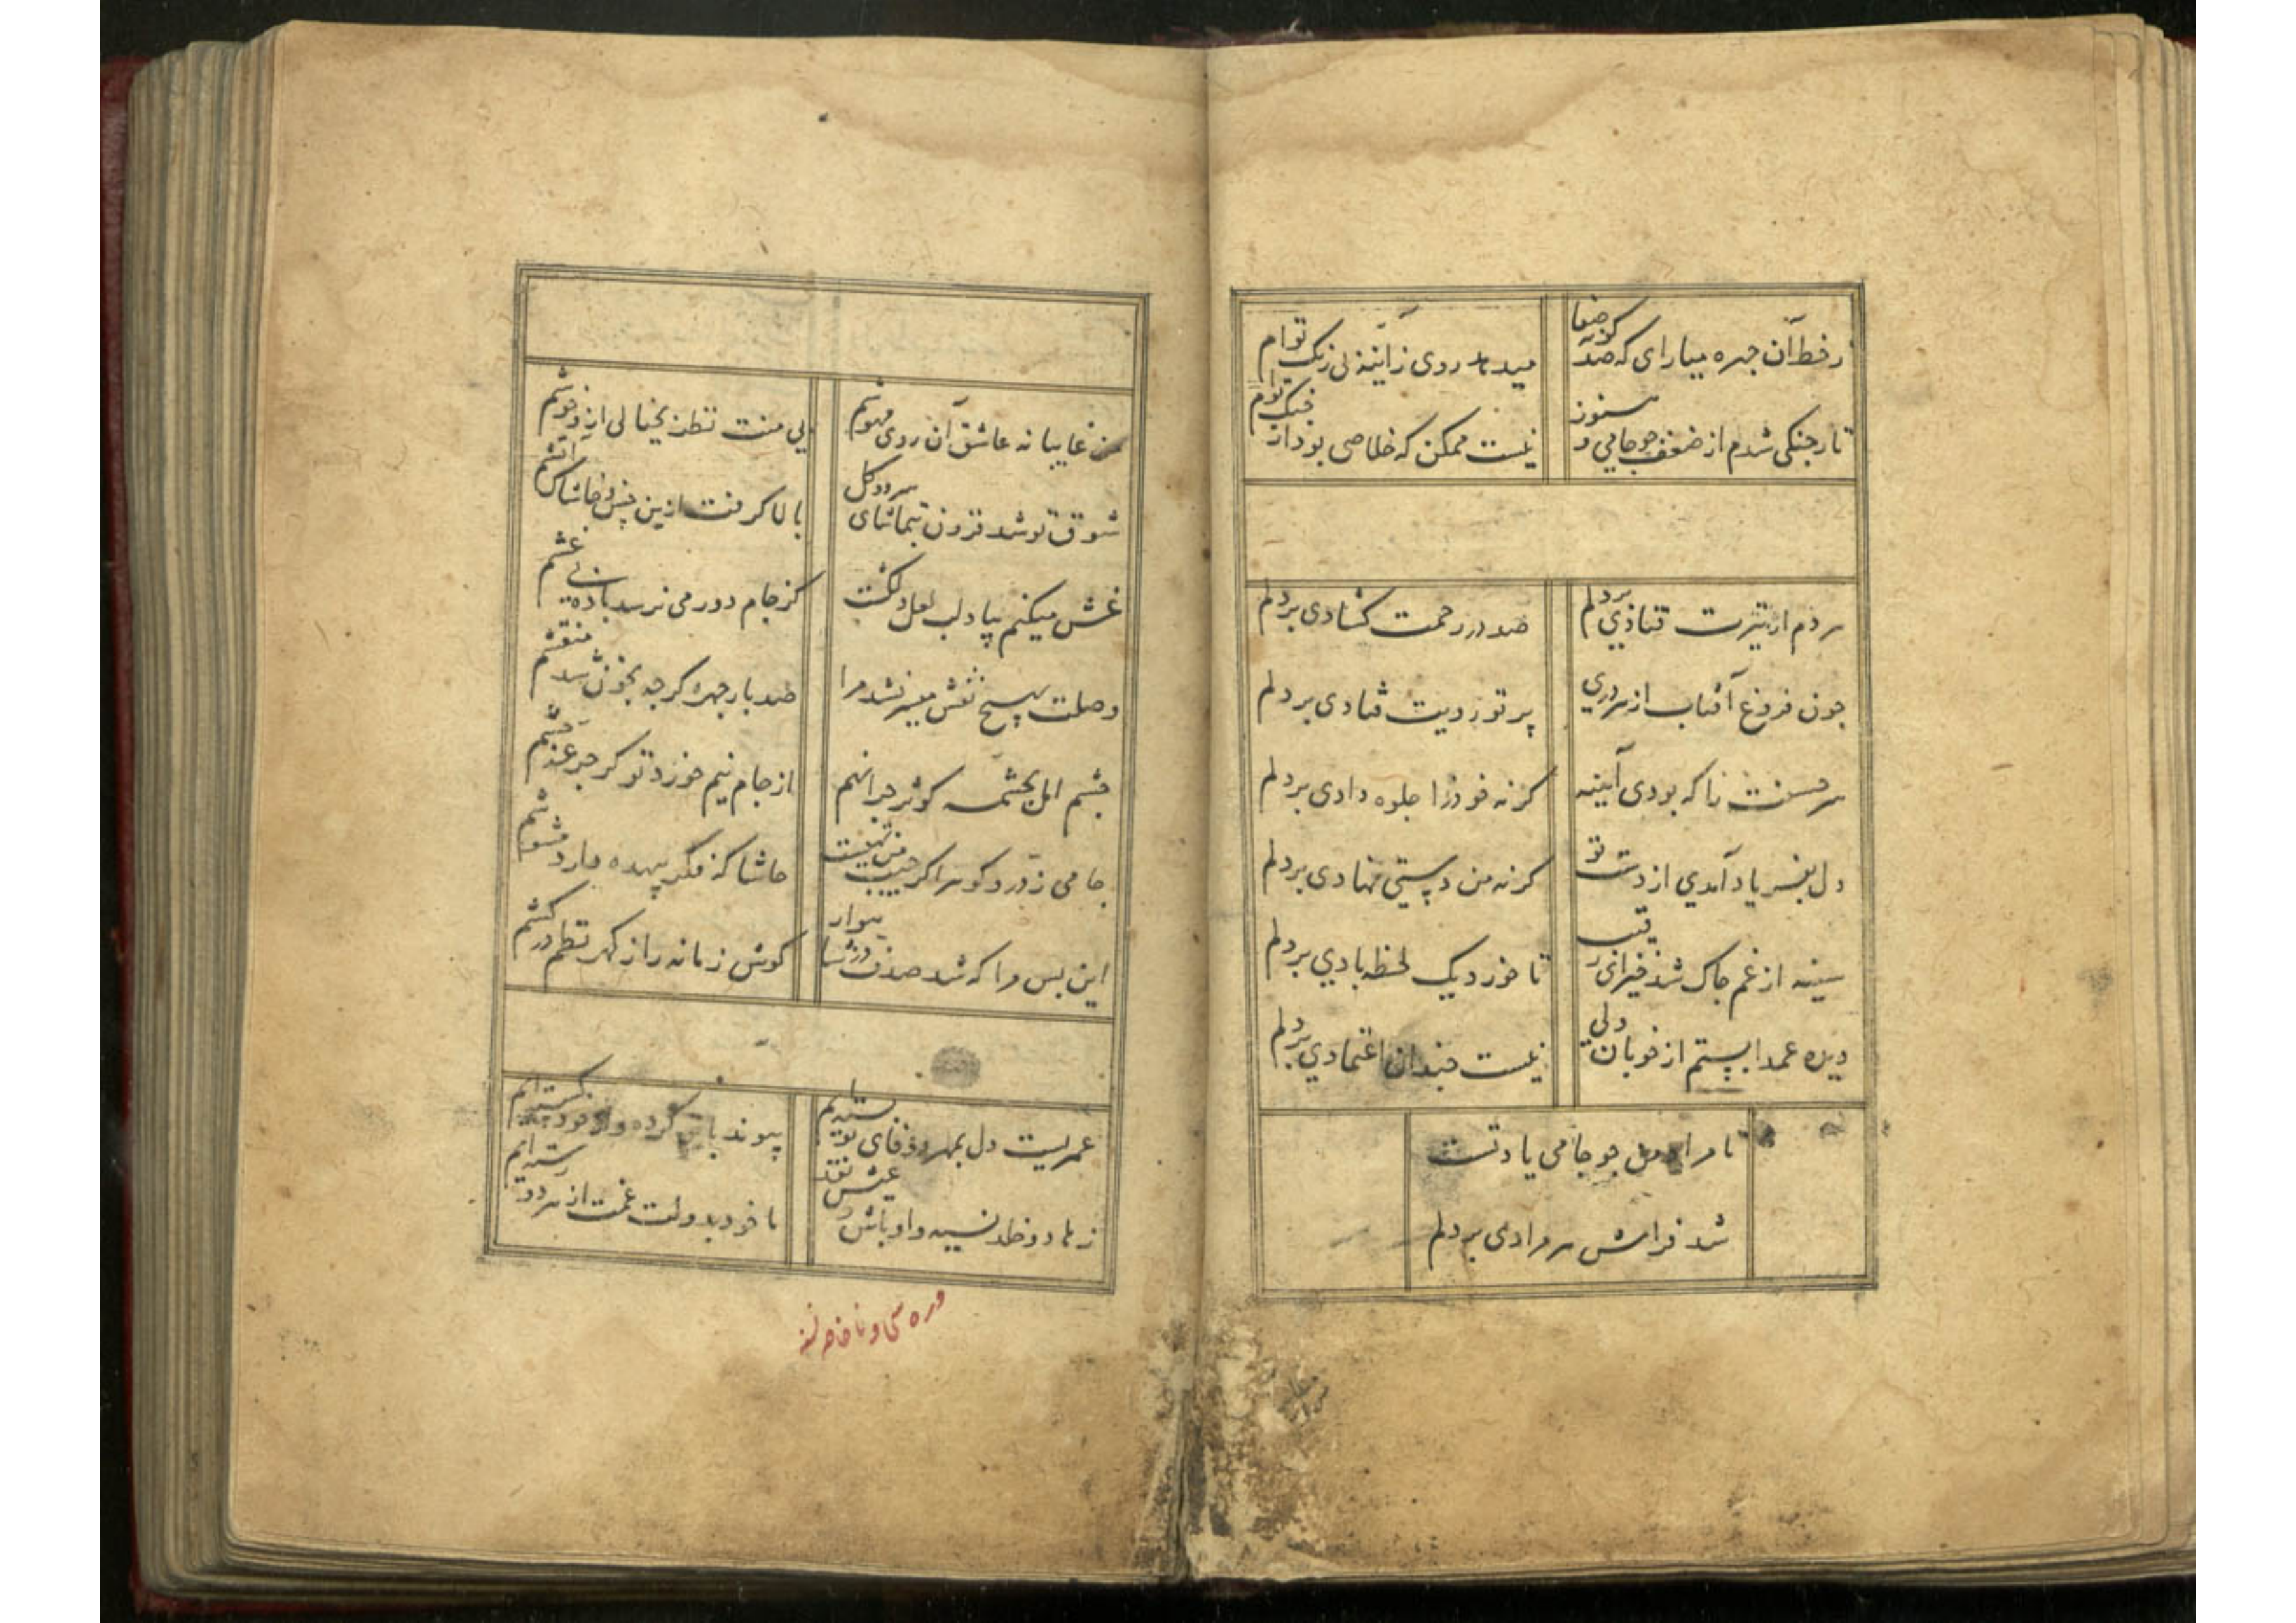 ز خط آن جهره میارای که صد کونه صفا
میدهد روی ز آیینه بی زنک توام
تار جنکی شدم از ضعف جو جامی و هنوز
نیست ممکن که خلاصی بود از جنک توام
هر دم از تیرت فتادی بر دلم
صد در رحمت کشادی بر دلم
جون فروغ آفتاب از هر دری
پرتو رویت فتادی بر دلم
هر حسنت را که بودی آیینه
کرنه خود را جلوه دادی بر دلم
دل بفریاد آمدی از دست تو
کرنه من دستی نهادی بر دلم
سینه از غم جاک شد خیز ای رقیب
تا خورد یک لحظه بادی بر دلم
دیده عمدا بستم از خوبان ولی
نیست جندان اعتمادی بر دلم
تا مراد من جو جامی یاد تست
شد فرامش هر مرادی بر دلم
من غایبانه عاشق آن روی مهوشم
بی منت نظر بخیالی ازو خوشم
شوق تو شد فزون بتماشای سرو و کل
بالا کرفت ازین خس و خاشاک آتشم
غش میکنم بیاد لب لعل دلکشت
کز جام دور می نرسد باده بی غشم
وصلت بهیچ نقش میسر نشد مرا
صد بار جهره کرجه بخون شد منقشم
جشم امل بجشمه کوثر جرا نهم
از جام نیم خورد تو کر جرعه جشم
جامی ز در و کوهر اکر جیب من تهیست
حاشا که فکر بیهده دارد مشوشم
این بس مرا که شد صدف در شاهوار
کوش زمانه را ز کهر نظم درکشم
عمریست دل بمهر و وفای تو بسته ایم
پیوند با تو کرده و از خود کسسته ایم
زهاد و خلد نسیه و اوباش و عیش نقد
ما خود بدولت غمت از هر دو رسته ایم